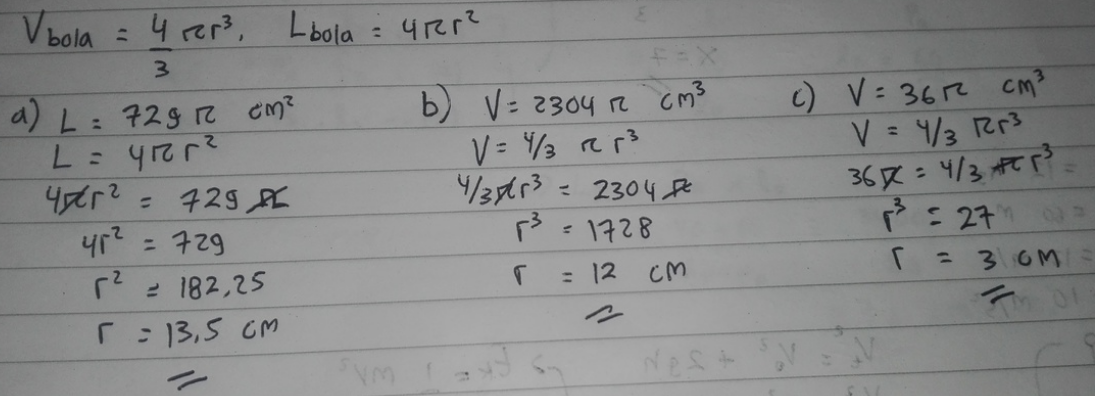 V bola = 4/3 πr³, L bola = 4πr²
a) L = 729π cm²
L = 4πr²
4πr² = 729π
4r² = 729
r² = 182,25
r = 13,5 cm
b) V = 2304π cm³
V = 4/3 πr³
4/3πr³ = 2304π
r³ = 1728
r = 12 cm
c) V = 36π cm³
V = 4/3 πr³
36π = 4/3 πr³
r³ = 27
r = 3 cm